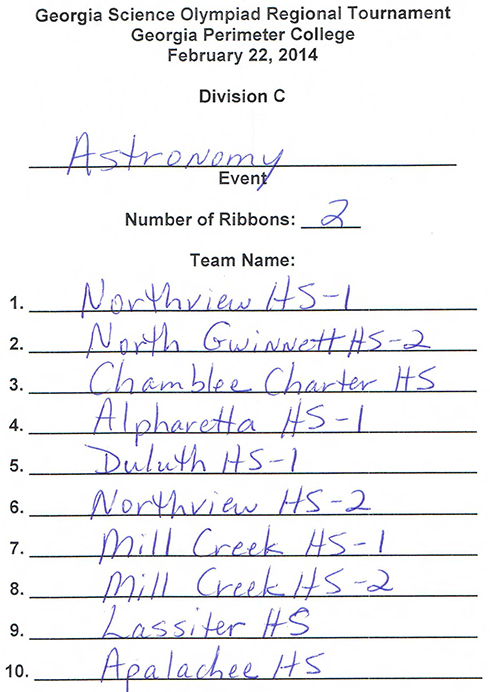 Georgia Science Olympiad Regional Tournament
Georgia Perimeter College
February 22, 2014
Division C
Astronomy
Event
Number of Ribbons: 2
Team Name:
1. Northview HS-1
2. North Gwinnett HS-2
3. Chamblee Charter HS
4. Alpharetta HS-1
5. Duluth HS-1
6. Northview HS-2
7. Mill Creek HS-1
8. Mill Creek HS-2
9. Lassiter HS
10. Apalachee HS